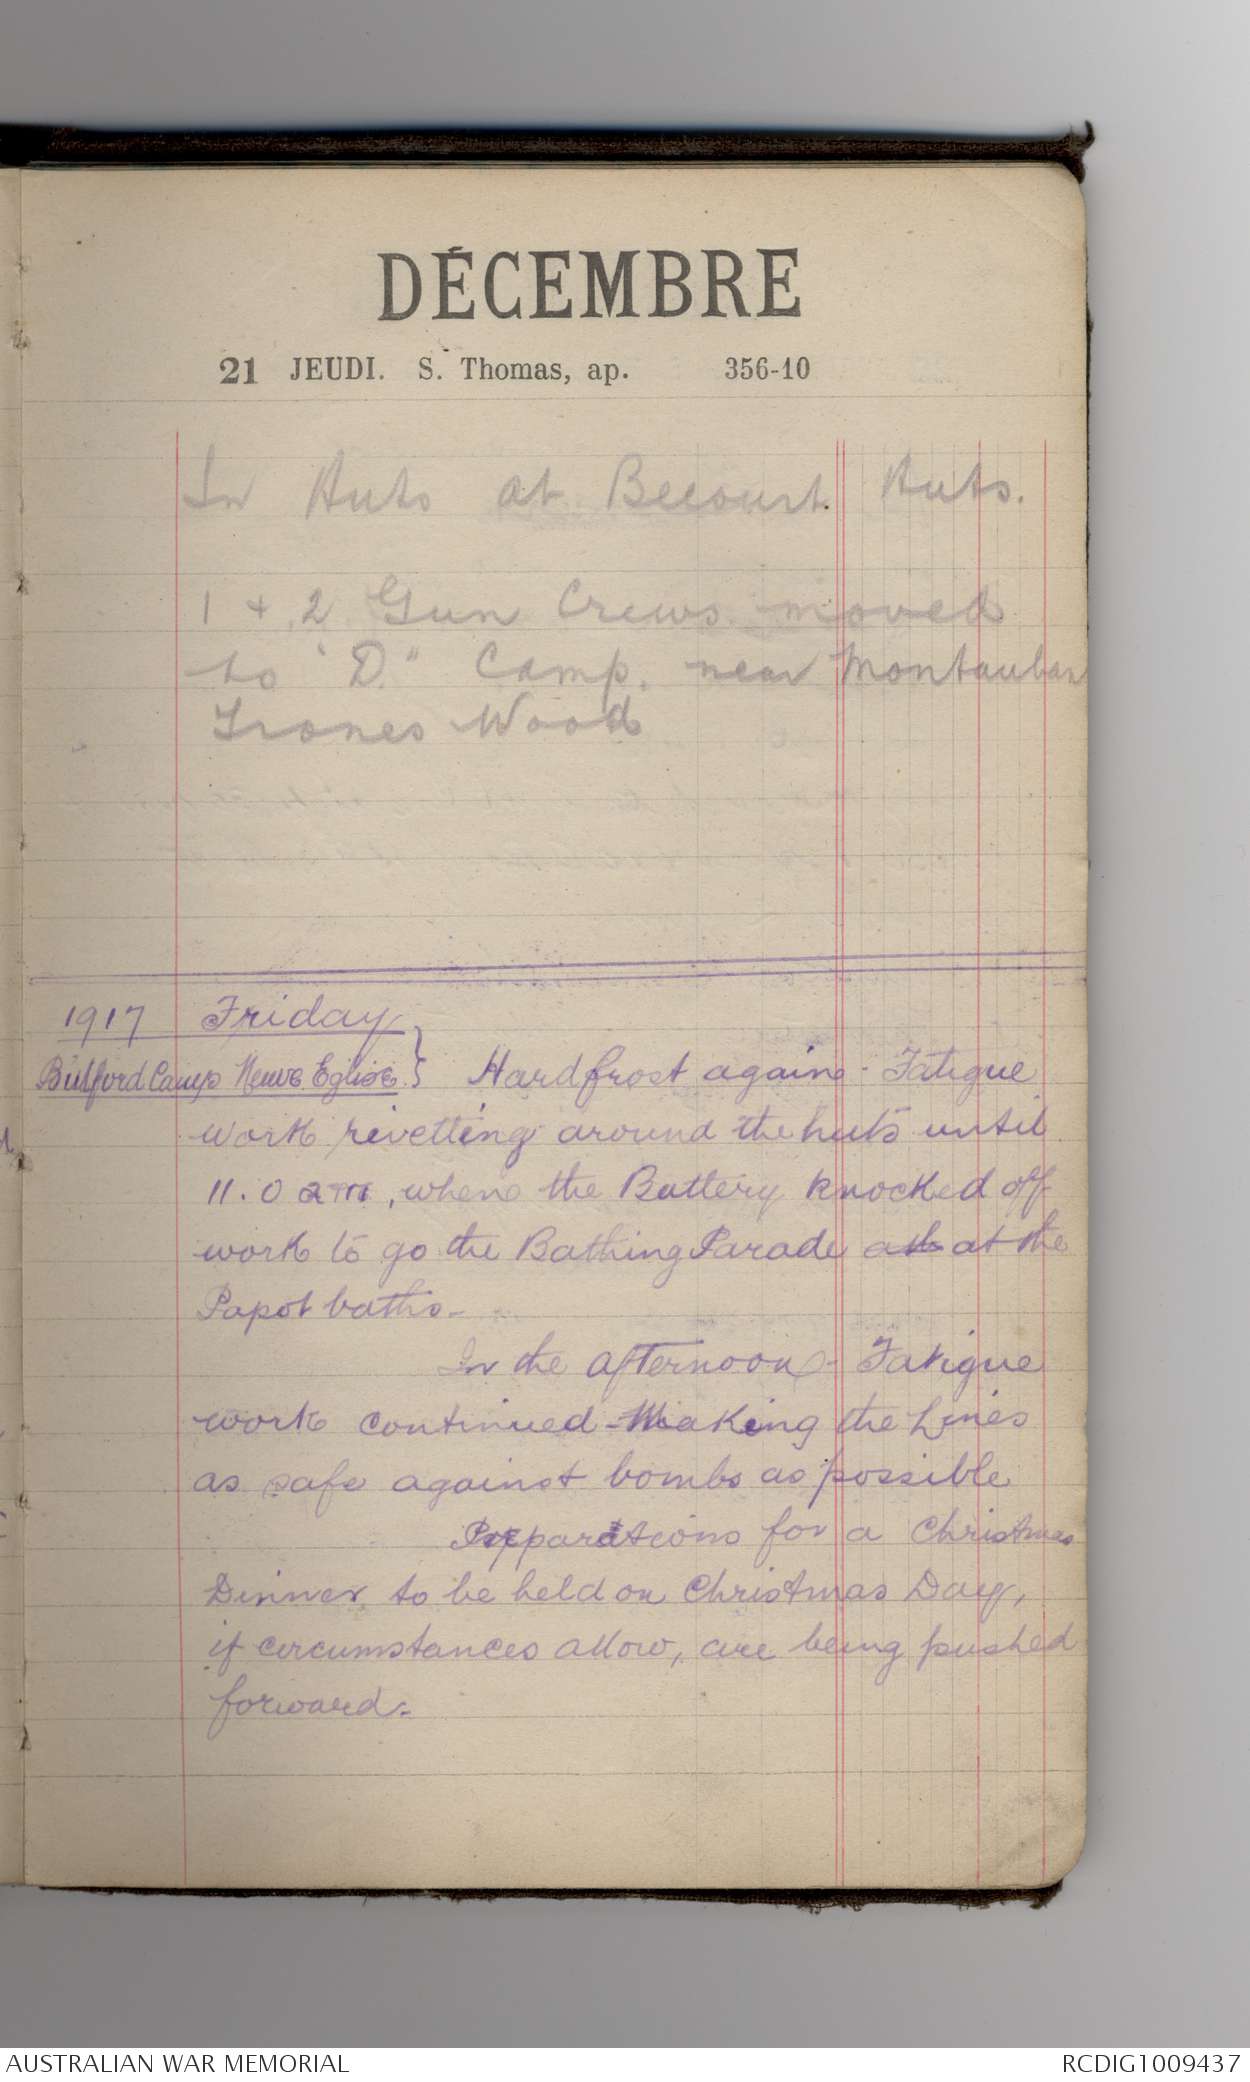 DÉCEMBRE
21 JEUDI. S. Thomas, ap. 356-10
In Huts at Becourt Huts.
1 + 2 Gun Crews moved
to "D" Camp. near Montauban
Trones Wood
1917 Friday
Bulford Camp Neuve Eglise } Hard frost again - Fatigue
work rivetting around the huts until
11.0 am, when the Battery knocked off
work to go the Bathing Parade at the
Papot baths -
In the afternoon - Fatigue
work continued - Making the Lines
as safe against bombs as possible
Preparations for a Christmas
Dinner to be held on Christmas Day,
if circumstances allow, are being pushed
forward.-
AUSTRALIAN WAR MEMORIAL RCDIG1009437